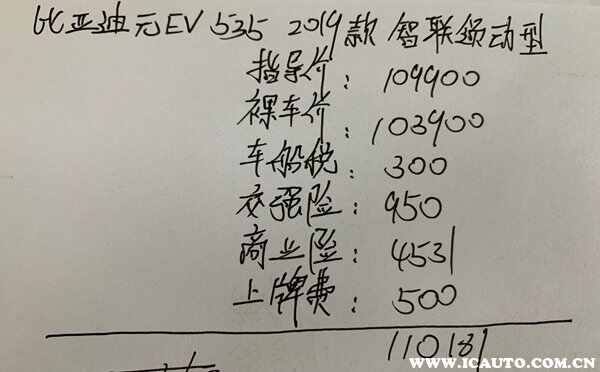 比亚迪元EV 535 2019款 智联领动型
指导价: 109900
裸车价: 103900
车船税: 300
交强险: 950
商业险: 4531
上牌费: 500
110181
爱卡汽车
WWW.ICAUTO.COM.CN